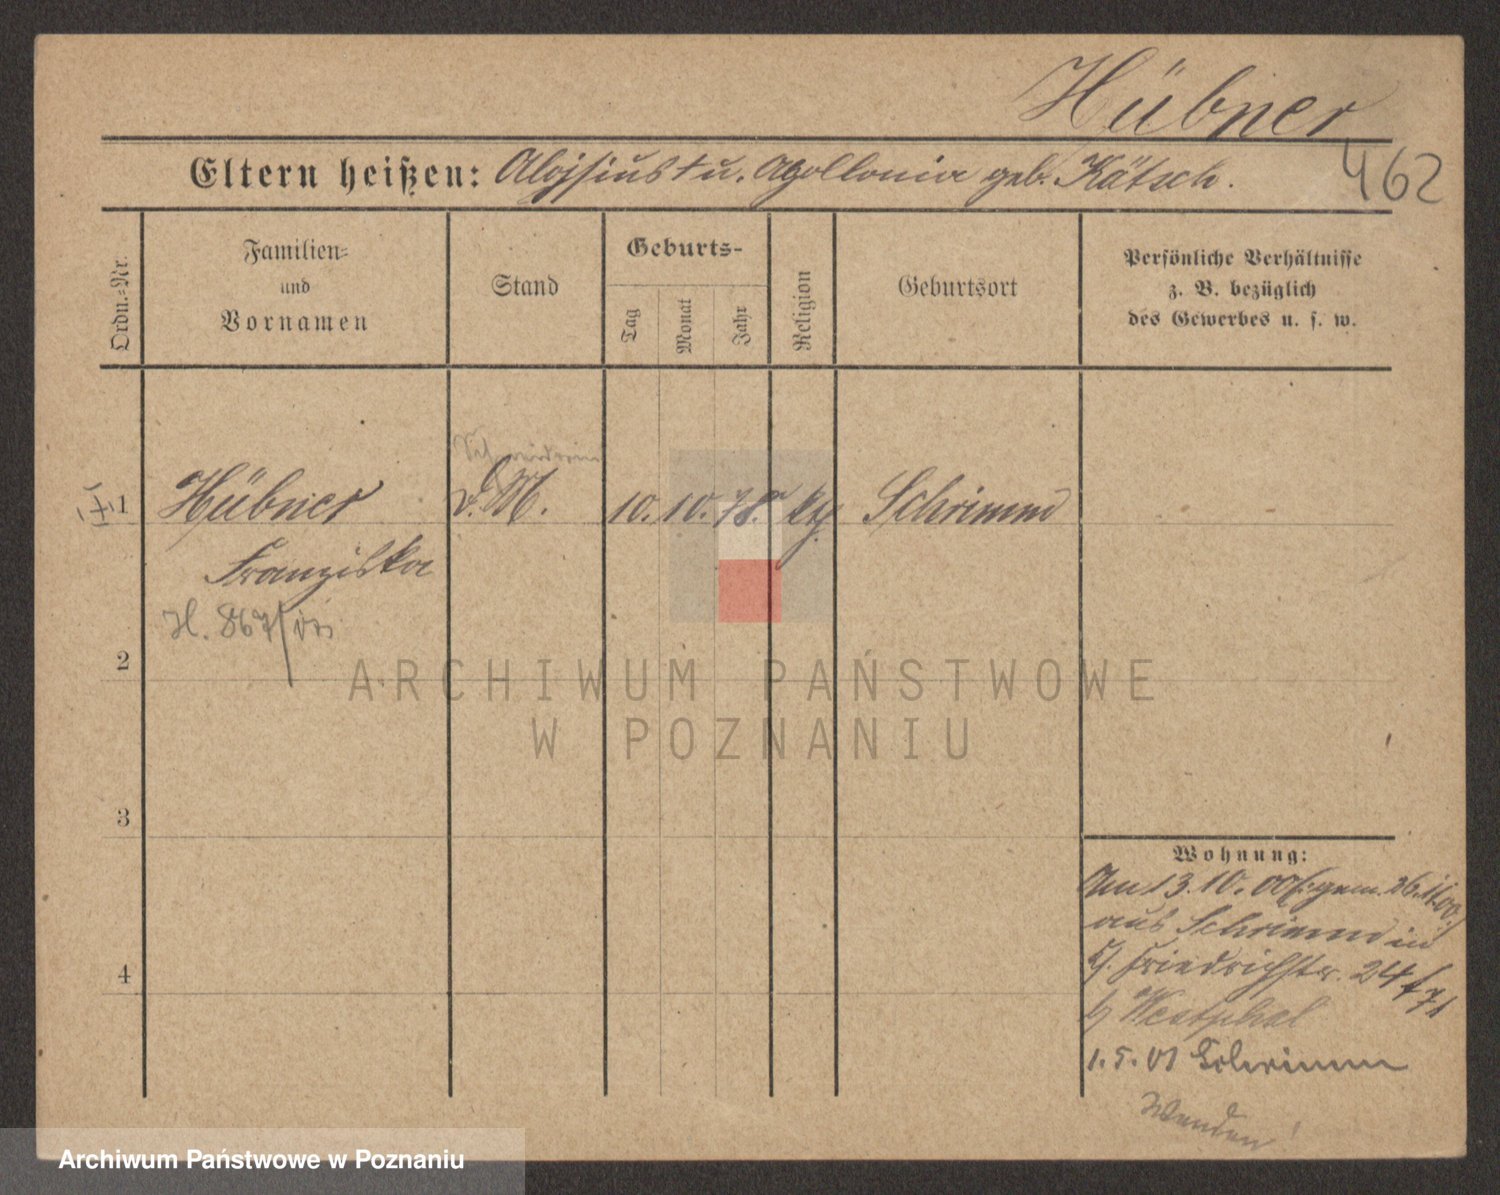 Hübner
462
Eltern heißen: Aloysius † u. Apollonia geb. Kätsch.
Ordn.-Nr.
Familien-
und
Vornamen
Stand
Geburts-
Tag
Monat
Jahr
Religion
Geburtsort
Persönliche Verhältnisse
z. B. bezüglich
des Gewerbes u. s. w.
Schneiderin
1 Hübner d. M. 10. 10. 78. Schrimm
Franziska
H. 867
2
3
4
ARCHIWUM PAŃSTWOWE
W POZNANIU
Wohnung:
Am 13. 10. 00 gem. 26. 11. 00
aus Schrimm in
Friedrichstr. 24
b/ Westphal
1. 5. 01 Schrimm
Wenden!
Archiwum Państwowe w Poznaniu